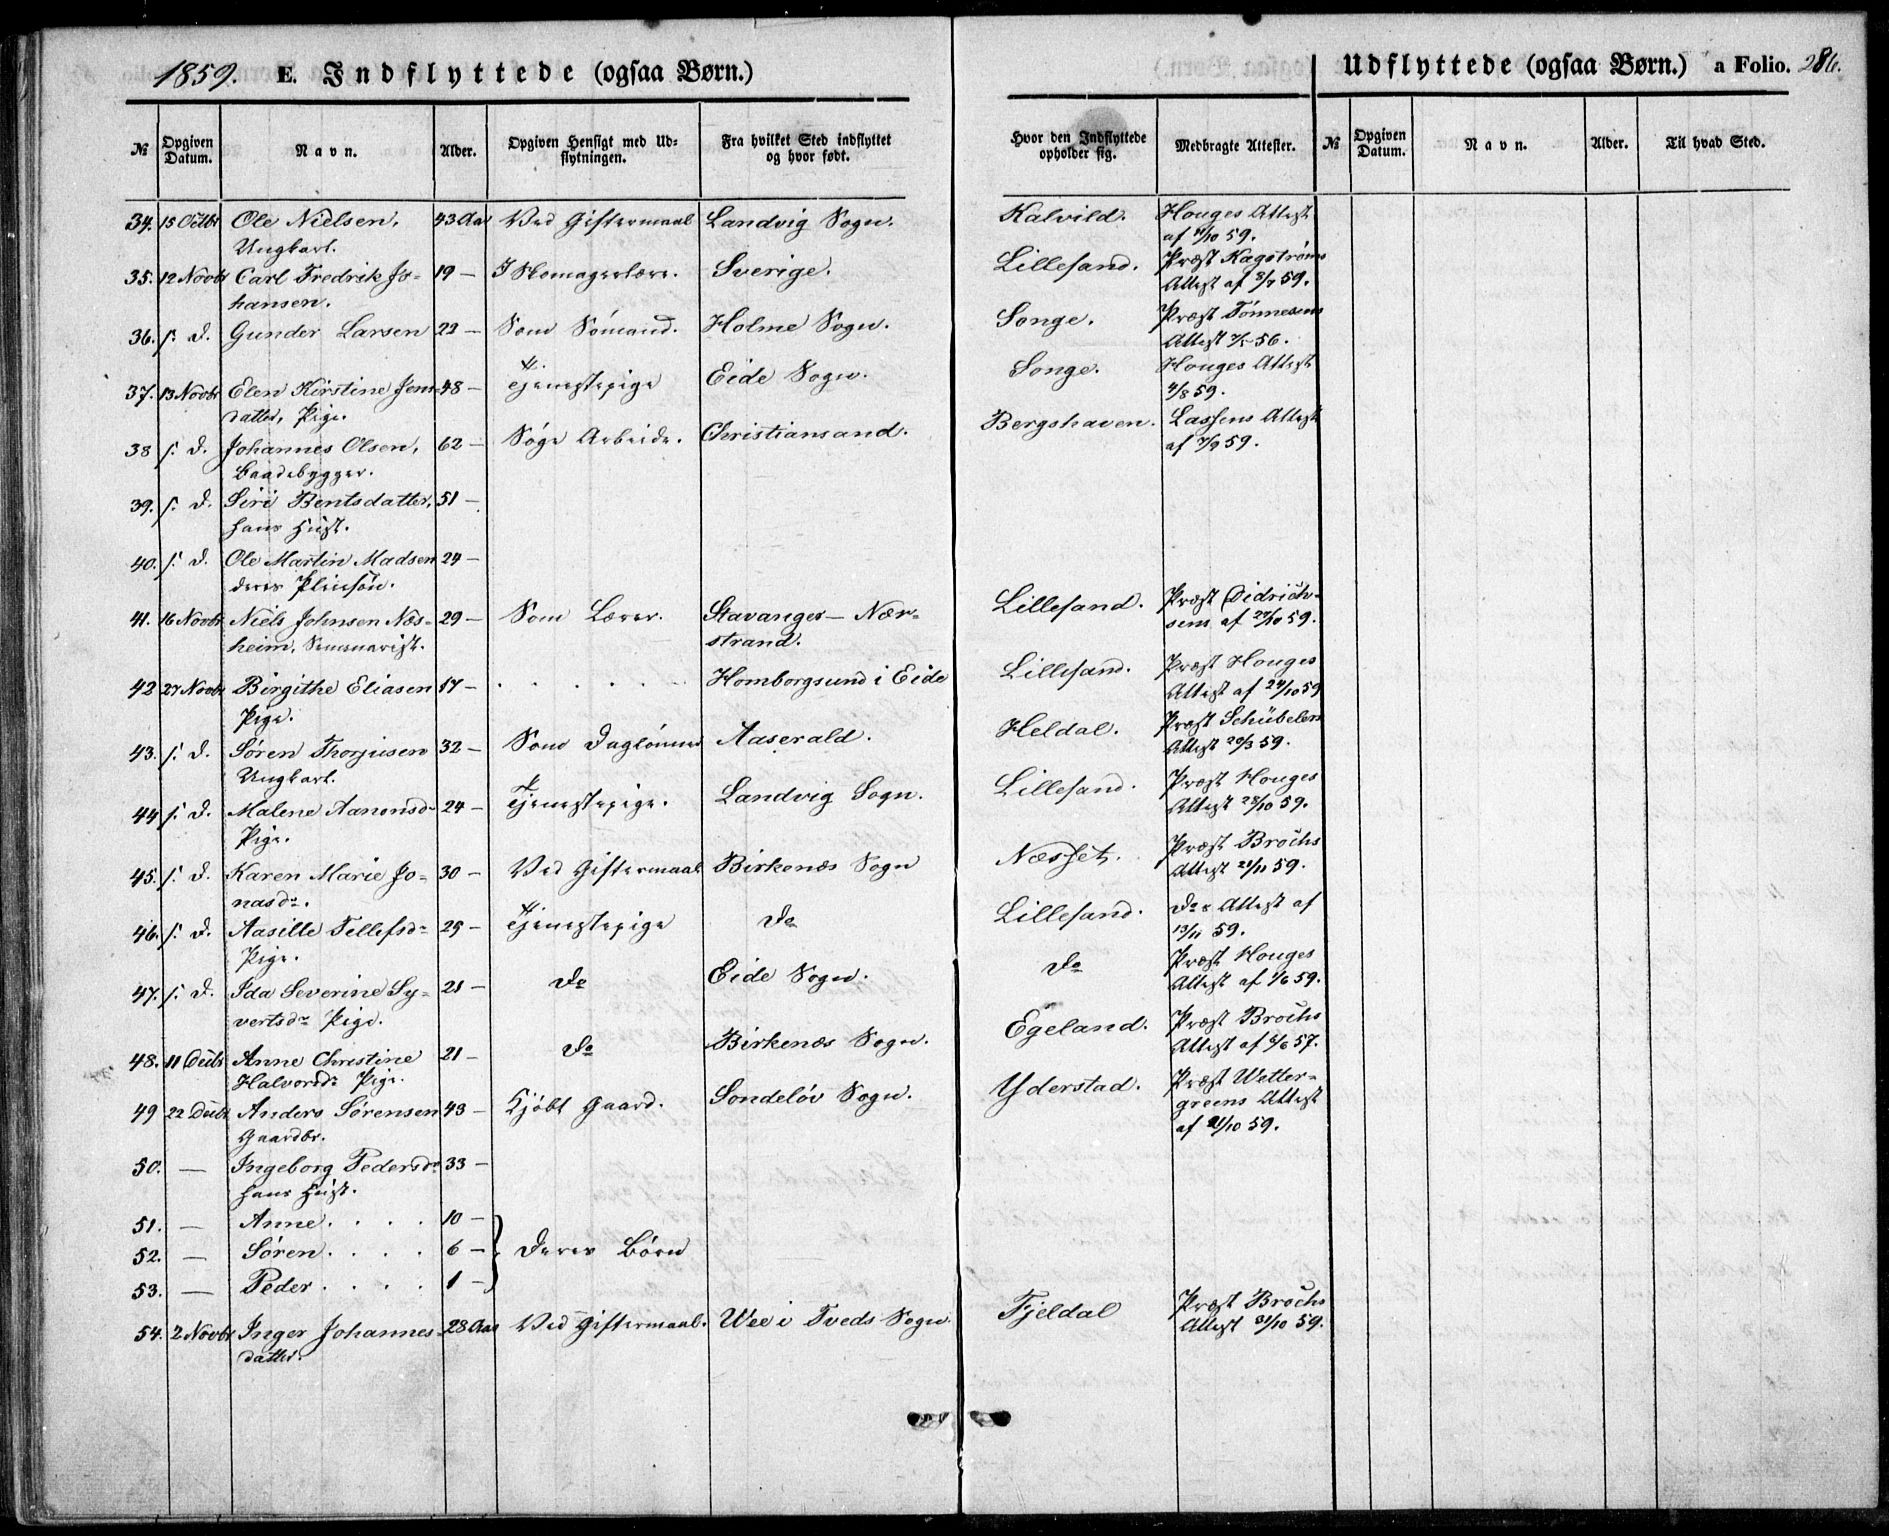 1859. E. Indflyttede (ogsaa Børn.)
Udflyttede (ogsaa Børn.) a Folio. 286.
№ Opgiven Datum. Navn. Alder. Opgiven Hensigt med Udflytningen. Fra hvilket Sted indflyttet og hvor født. Hvor den Indflyttede opholder sig. Medbragte Attester. № Opgiven Datum. Navn. Alder. Til hvad Sted.
34. 15 Octbr Ole Nielsen, 43 Aar Ved Giftermaal Landvig Sogn. Kalvild. Houges Attest
Ungkarl. af 11/10 59.
35. 12 Novbr Carl Fredrik Jo- 19 — I Skomagerlære. Sverige. Lillesand. Præst Kagstrøms
hansen. Attest af 8/7 59.
36. s. D. Gunder Larsen 23 — Som Sømand. Holme Sogn. Songe. Præst Tönnesens
Attest 56.
37. 13 Novbr Elen Kirstine Jens- 48 — Tjenestepige Eide Sogn. Songe. Houges Attest
datter, Pige. 4/8 59.
38 s. D. Johannes Olsen, 62 — Söge Arbeide. Christiansand. Bergshaven. Lassens Attest
Baadebygger. af 7/9 59.
39. s. D. Siri Bentsdatter, 51 —
hans Hust.
40. s. D. Ole Martin Madsen 24 —
deres Pleiesön.
41. 16 Novbr Niels Johnsen Næs- 29 — Som Lærer. Stavanger — Nær- Lillesand. Præst Didrich-
heim, Semenarist. strand. sens af 27/10 59.
42 27 Novbr Birgithe Eliasen 17 — . . . . . . Homborgsund i Eide Lillesand. Præst Houges
Pige. Attest af 24/10 59
43. s. D. Søren Thorjusen 32 — Som Daglönner Aaserald. Heldal. Præst Schübelers
Ungkarl. Attest 20/3 59.
44 s. D. Malene Aanonsdr 24 — Tjenestepige. Landvig Sogn. Lillesand. Præst Houges
Pige. Attest 28/10 59.
45. s. D. Karen Marie Jo- 30 — Ved Giftermaal Birkenæs Sogn Næsset. Præst Brochs
nasdr. Attest 21/11 59.
46. s. D. Aasille Tellefsdr 25 — Tjenestepige do Lillesand. dos Attest af
Pige. 13/11 59.
47. s. D. Ida Severine Sy- 21 — do Eide Sogn. do Præst Houges
vertsdr Pige. Attest af 1/6 59.
48. 11 Decbr Anne Christine 21 — do Birkenæs Sogn. Egeland. Præst Brochs
Halvorsdr Pige. Attest af 8/6 57.
49 22 Decbr Anders Sörensen 43 — Kjöbt Gaard. Sondelöv Sogn. Yderstad. Præst Wetter-
Gaardbr. greens Attest
af 21/10 59.
50. — Ingeborg Pedersdr 33 —
hans Hust.
51. — Anne . . . . 10 —
52. — Søren . . . . 6 — } Deres Börn
53. — Peder . . . . 1 —
54. 2 Novbr Inger Johannes- 28 Aar Ved Giftermaal. Wee i Tveds Sogn Fjeldal Præst Brochs
datter. Attest 31/10 59.